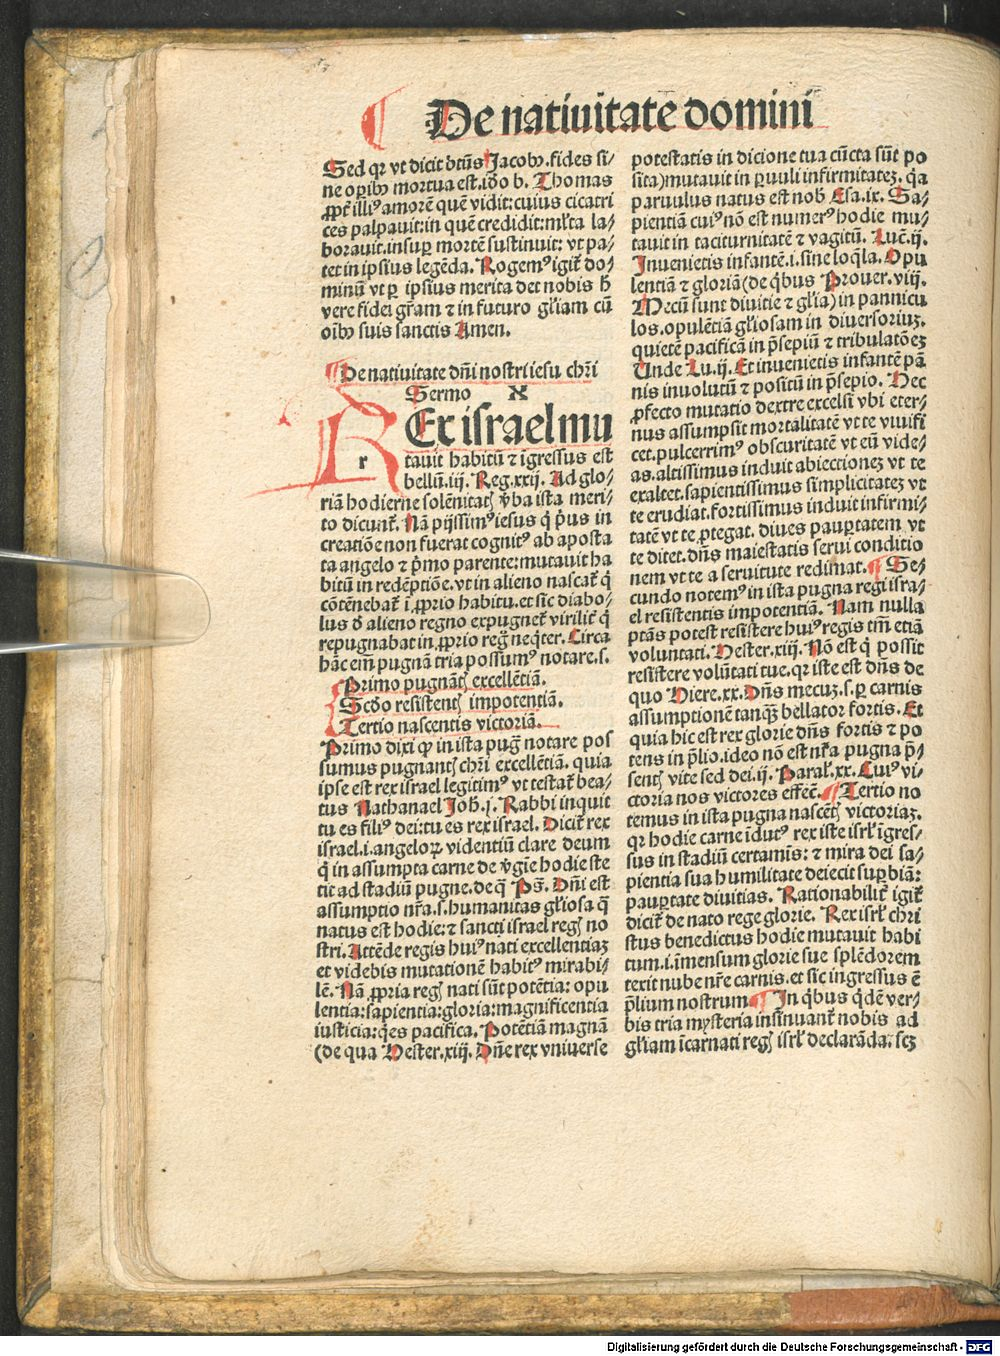 De natiuitate domini
Sed qꝛ vt dicit btūs Jacobꝰ. fides si⸗
ne oꝑibꝰ mortua est. idō b. Thomas
ꝓpt̄ illiꝰ amorē quē vidit: cuius cicatri
ces palpauit: in quē credidit: ml̄ta la⸗
borauit. insuꝑ mortē sustinuit: vt pa⸗
tet in ipsius legēda. Rogemꝰ igit̄ do⸗
minū vt ꝑ ipsius merita det nobis h̄
vere fidei gr̄am ⁊ in futuro gl̄iam cū
oībꝰ suis sanctis Amen.
De natiuitate dn̄i nostri iesu chr̄i
Sermo א
r
Ex israel mu
tauit habitū ⁊ igressus est
bellū. iij. Reg. xxij. Ad glo⸗
riā hodierne solēnitatꝭ v̄ba ista meri⸗
to dicunt̄. Nā pijssimꝰ iesus q̄ pꝰus in
creatiōe non fuerat cognitꝰ ab aposta
ta angelo ⁊ pͥmo parente: mutauit ha
bitū in redēptiōe. vt in alieno nascat̄ q̄
cōtēnebat̄ i ꝓprio habitu. et sic diabo⸗
lus d̄ alieno regno expugnet̄ virilit̄ q̄
repugnabat in ꝓprio reḡ neqt̄er. Circa
hāc em̄ pugnā tria possumꝰ notare. s.
Primo pugnātꝭ excellētiā.
Scd̄o resistentꝭ impotentiā.
Tertio nascentis victoriā.
Primo dixi ꝙ in ista puḡ notare pos
sumus pugnantꝭ chr̄i excellētiā. quia
ipse est rex israel legitimꝰ vt testat̄ bea⸗
tus Nathanael Joh̄. j. Rabbi inquit
tu es filiꝰ dei: tu es rex israel. Dicit̄ rex
israel. i. angeloꝝ videntiū clare deum
q̄ in assumpta carne de v̄gīe hodie ste
tit ad stadiū pugne. de q̄ Ps̄. Dn̄i est
assumptio nr̄a. s. humanitas gl̄iosa q̄
natus est hodie: ⁊ sancti israel regꝭ no
stri. Attēde regis huiꝰ nati excellentiaꝫ
et videbis mutationē habitꝰ mirabi⸗
lē. Nā ꝓpria regꝭ nati sūt potētia: opu
lentia: sapientia: gloria: magnificentia
iusticia: q̄es pacifica. Potētiā magnā
(de qua Hester. xiij. Dn̄e rex vniuerse
potestatis in dicione tua cūcta sūt po
sita) mutauit in ꝑuuli infirmitateꝫ. q̄a
paruulus natus est nob̄ Esa. ix. Sa⸗
pientiā cuiꝰ nō est numerꝰ hodie mu⸗
tauit in taciturnitatē ⁊ vagitū. Luc̄. ij.
Inuenietis infantē. i. sine loq̄la. Opu
lentiā ⁊ gloriā (de qͥbus Prouer. viij.
Mecū sunt diuitie ⁊ gl̄ia) in pannicu
los. opulētiā gl̄iosam in diuersoriuꝫ.
quietē pacificā in p̄sepiū ⁊ tribulatōeꝫ
Unde Lu. ij. Et inuenietis infantē pā
nis inuolutū ⁊ positū in p̄sepio. Hec
ꝓfecto mutatio dextre excelsi vbi eter⸗
nus assumpsit mortalitatē vt te viuifi
cet. pulcerrimꝰ obscuritatē vt eū vide⸗
as. altissimus induit abiectioneꝫ vt te
exaltet. sapientissimus simplicitateꝫ vt
te erudiat. fortissimus induit infirmi⸗
tatē vt te ꝓtegat. diues pauꝑtatem vt
te ditet. dn̄s maiestatis serui conditio
nem vt te a seruitute redimat. ¶ Se⸗
cundo notemꝰ in ista pugna regi isra⸗
el resistentis impotentiā. Nam nulla
ptās potest resistere huiꝰ regis tm̄ etiā
voluntati. Hester. xiij. Nō est q̄ possit
resistere volūtati tue. qꝛ iste est dn̄s de
quo Hiere. xx. Dn̄s mecuꝫ. s. ꝑ carnis
assumptionē tanqꝫ bellator fortis. Et
quia hic est rex glorie dn̄s fortis ⁊ po
tens in p̄lio. ideo nō est nr̄a pugna p̄⸗
sentꝭ vite sed dei. ij. Paral̄. xx. Cuiꝰ vi⸗
ctoria nos victores effec̄. ¶ Tertio no
temus in ista pugna nascētꝭ victoriaꝫ.
qꝛ hodie carne īdutꝰ rex iste isrl̄ īgres⸗
sus in stadiū certamīs: ⁊ mira dei sa⸗
pientia sua humilitate deiecit suꝑbiā:
pauꝑtate diuitias. Rationabilit̄ igit̄
dicit̄ de nato rege glorie. Rex isrl̄ chri
stus benedictus hodie mutauit habi
tum. i. īmensum glorie sue splēdorem
texit nube nr̄e carnis. et sic ingressus ē
p̄lium nostrum. ¶ In qͥbus qͥdē ver⸗
bis tria mysteria insinuant̄ nobis ad
gl̄iam īcarnati regꝭ isrl̄ declarāda. scꝫ
Digitalisierung gefördert durch die Deutsche Forschungsgemeinschaft - DFG